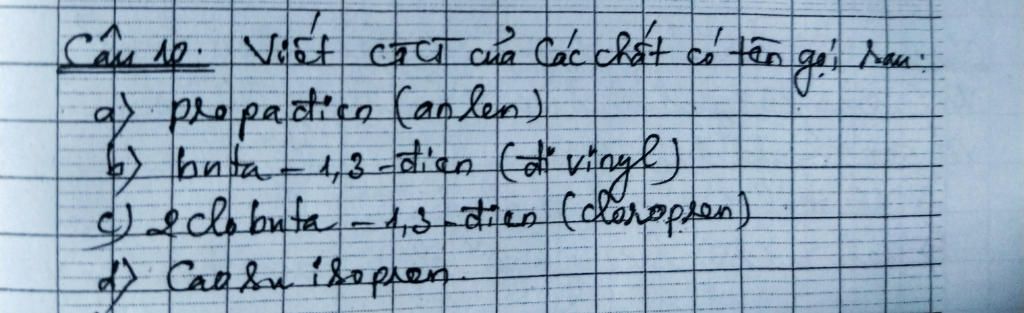 Câu 10. Viết CTCT của Các chất có tên gọi sau:
a) propađien (anlen)
b) buta - 1,3 - đien (đi vinyl)
c) 2 clo buta - 1,3 - đien (cloropren)
d) Cao su isopren.